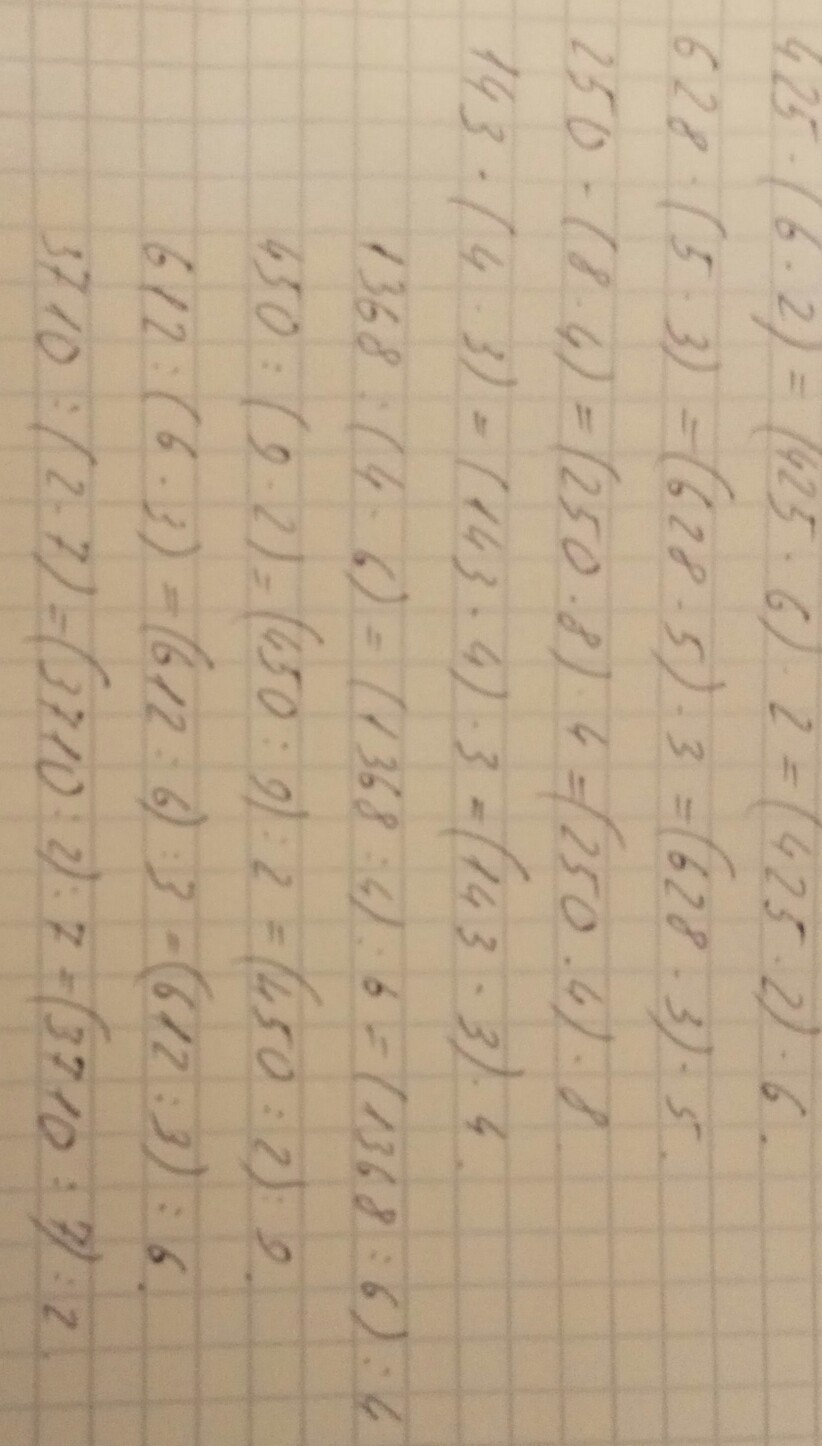 425 · (6 · 2) = (425 · 6) · 2 = (425 · 2) · 6.
628 · (5 · 3) = (628 · 5) · 3 = (628 · 3) · 5.
250 · (8 · 4) = (250 · 8) · 4 = (250 · 4) · 8
143 · (4 · 3) = (143 · 4) · 3 = (143 · 3) · 4.
1368 : (4 · 6) = (1368 : 4) : 6 = (1368 : 6) : 4
450 : (9 · 2) = (450 : 9) : 2 = (450 : 2) : 9.
612 : (6 · 3) = (612 : 6) : 3 = (612 : 3) : 6.
3710 : (2 · 7) = (3710 : 2) : 7 = (3710 : 7) : 2.